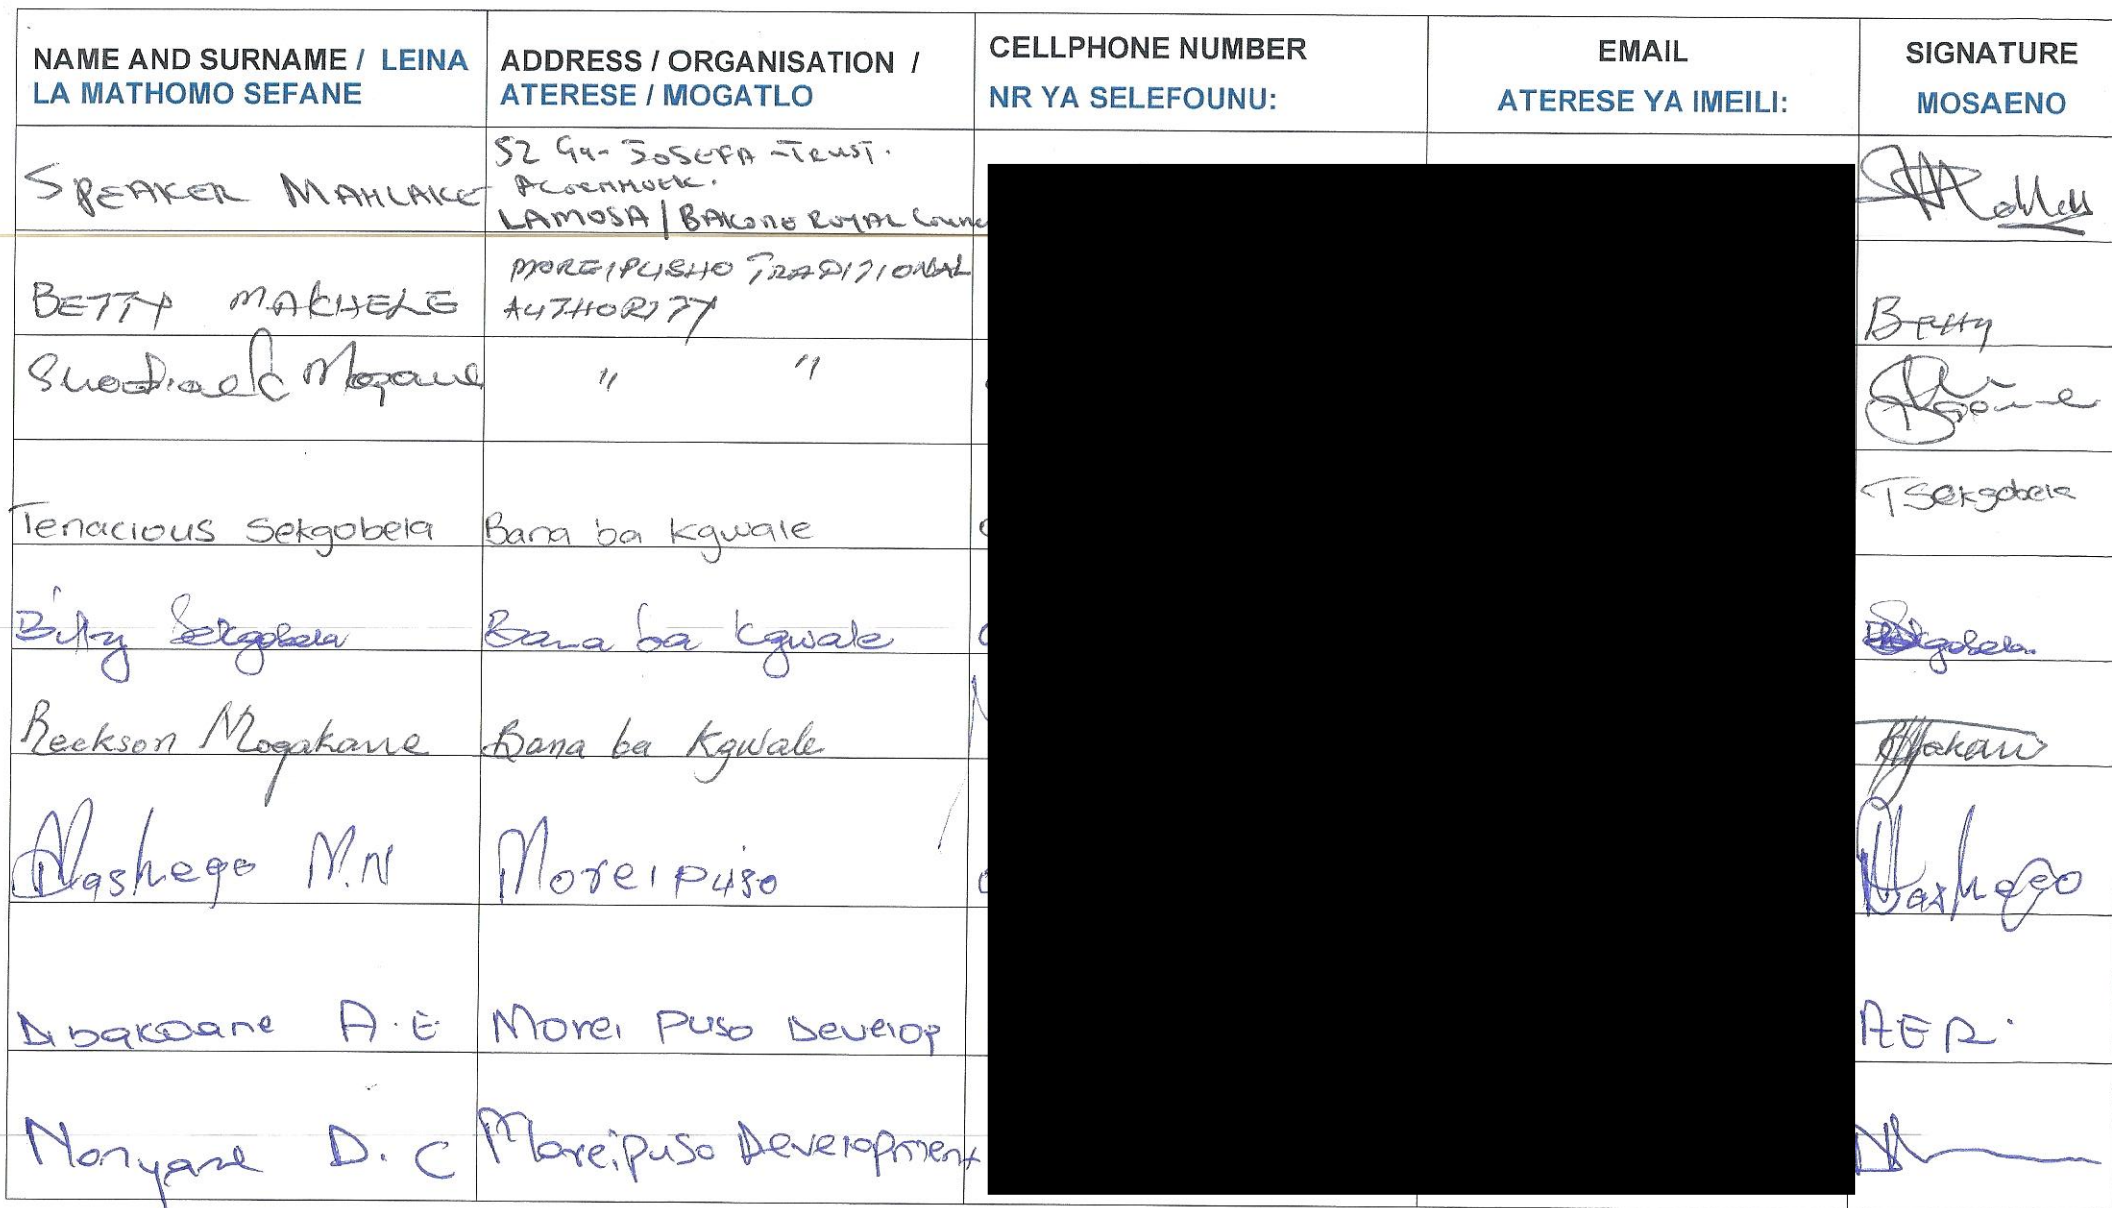 NAME AND SURNAME / LEINA LA MATHOMO SEFANE
ADDRESS / ORGANISATION / ATERESE / MOGATLO
CELLPHONE NUMBER
NR YA SELEFOUNU:
EMAIL
ATERESE YA IMEILI:
SIGNATURE
MOSAENO
SPEAKER MAHLAKE
52 GA-JOSEFA-TRUST.
LAMOSA / BAKONE ROYAL
BETTY MAKHELE
MOREIPUSHO TRADITIONAL
AUTHORITY
Betty
" "
Tenacious Sekgobela
Bana ba Kgwale
TSekgobela
Billy Sekgobela
Bana ba Kgwale
Sekgobela
Reckson Mogakane
Bana ba Kgwale
Mashego M.N
Moreipuso
Mashego
Dibakoane A.E
Morei Puso Develop
AER.
Monyane D.C
Moreipuso Development